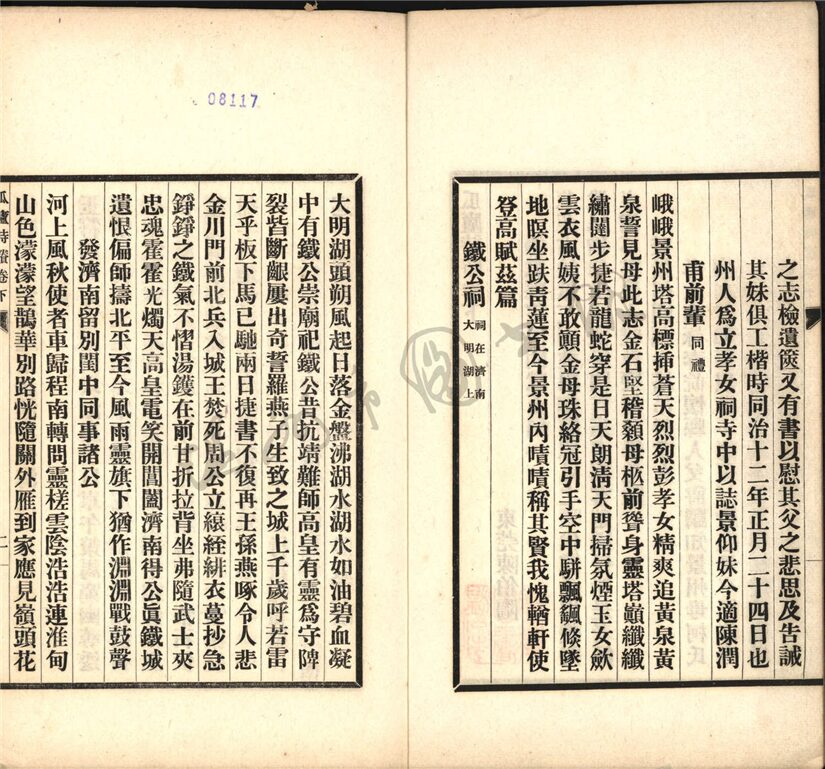 之志檢遺篋又有書以慰其父之悲思及告誡
其妹俱工楷時同治十二年正月二十四日也
州人爲立孝女祠寺中以誌景仰妹今適陳潤
甫前輩同禮
峨峨景州塔高標揷蒼天烈烈彭孝女精爽追黃泉黃
泉誓見母此志金石堅稽顙母柩前聳身靈塔巔纖纖
繡闥步捷若龍蛇穿是日天朗淸天門掃氛煙玉女斂
雲衣風姨不敢顚金母珠絡冠引手空中騈飄飄倏墜
地暝坐趺靑蓮至今景州內嘖嘖稱其賢我愧輶軒使
登高賦茲篇
鐵公祠祠在濟南大明湖上
大明湖頭朔風起日落金盤沸湖水湖水如油碧血凝
中有鐵公崇廟祀鐵公昔抗靖難師高皇有靈爲守陴
裂眥斷齦屢出奇誓羅燕子生致之城上千歲呼若雷
天乎板下馬已馳兩日捷書不復再王孫燕啄令人悲
金川門前北兵入城王焚死周公立縗絰緋衣蔓抄急
錚錚之鐵氣不慴湯鑊在前甘折拉背坐弗隨武士夾
忠魂霍霍光燭天高皇電笑開閶闔濟南得公眞鐵城
遺恨偏師擣北平至今風雨靈旗下猶作淵淵戰鼓聲
發濟南留別闈中同事諸公
河上風秋使者車歸程南轉問靈槎雲陰浩浩連淮甸
山色濛濛望鵲華別路恍隨關外雁到家應見嶺頭花
瓜廬詩賸卷下
二
08117